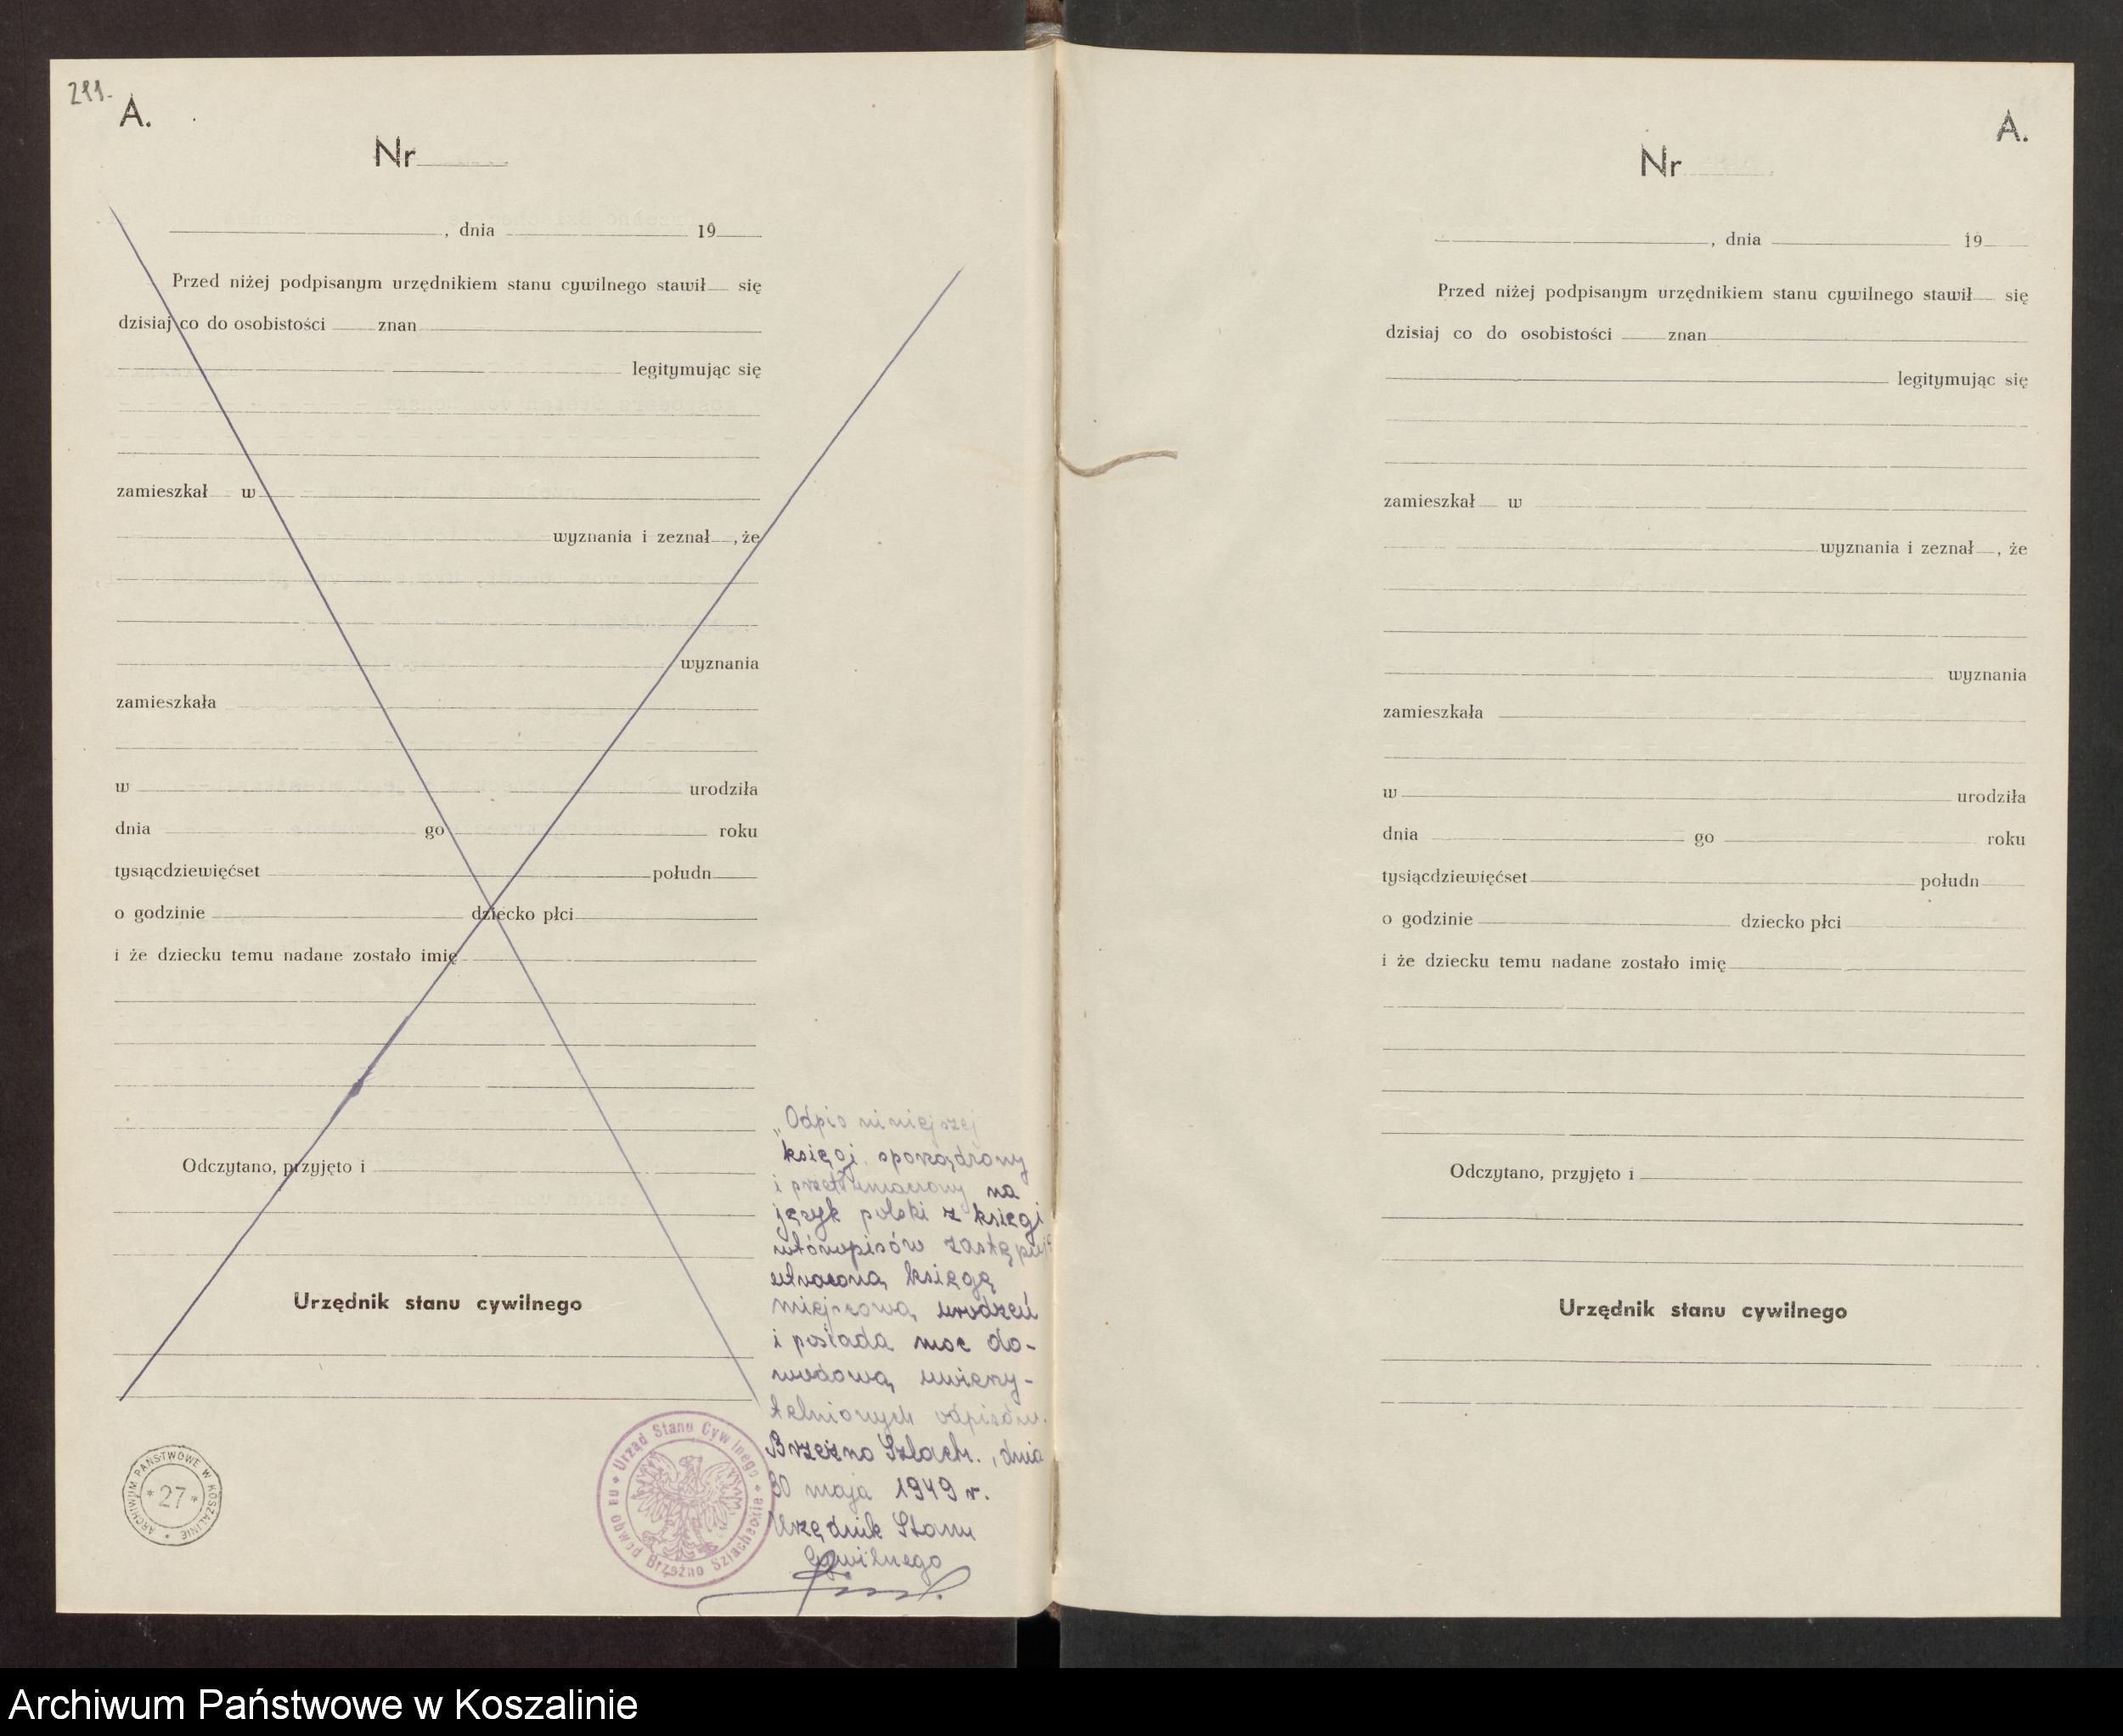 299.
A.
Nr
, dnia 19
Przed niżej podpisanym urzędnikiem stanu cywilnego stawił się
dzisiaj co do osobistości znan
legitymując się
zamieszkał w
wyznania i zeznał , że
wyznania
zamieszkała
w urodziła
dnia go roku
tysiącdziewięćset połudn
o godzinie dziecko płci
i że dziecku temu nadane zostało imię
Odczytano, przyjęto i
Urzędnik stanu cywilnego
„Odpis niniejszej
księgi sporządzony
i przetłumaczony na
język polski z księgi
wtóropisów zastępuje
utraconą księgę
miejscową urodzeń
i posiada moc do-
wodową uwierzy-
telnionych odpisów.
Brzeźno Szlach., dnia
30 maja 1949 r.
Urzędnik Stanu
Cywilnego
Urząd Stanu Cywilnego
na obwód Brzeźno Szlacheckie
ARCHIWUM PAŃSTWOWE W KOSZALINIE
* 27 *
A.
Nr
, dnia 19
Przed niżej podpisanym urzędnikiem stanu cywilnego stawił się
dzisiaj co do osobistości znan
legitymując się
zamieszkał w
wyznania i zeznał , że
wyznania
zamieszkała
w urodziła
dnia go roku
tysiącdziewięćset połudn
o godzinie dziecko płci
i że dziecku temu nadane zostało imię
Odczytano, przyjęto i
Urzędnik stanu cywilnego
Archiwum Państwowe w Koszalinie